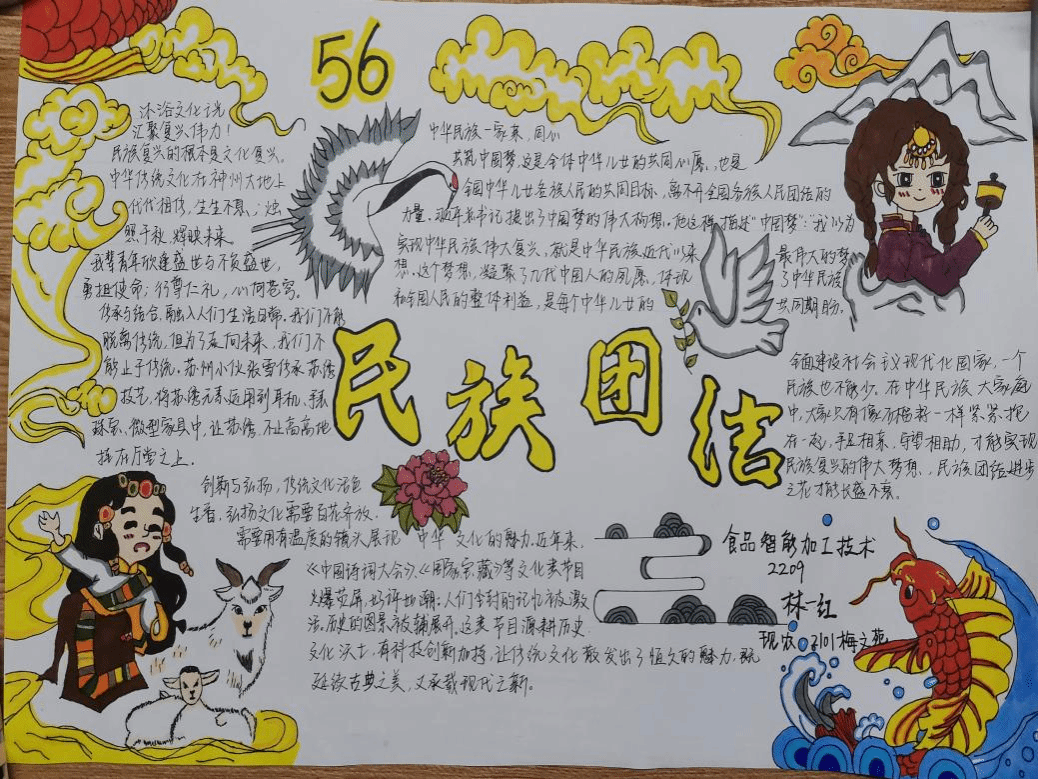 56
沐浴文化之光
汇聚复兴伟力！
民族复兴的根本是文化复兴。
中华传统文化在神州大地上
代代相传，生生不息，烛
照千秋，辉映未来。
我辈青年欣逢盛世当不负盛世，
勇担使命；行尊仁礼，心向苍穹。
传承与结合，融入人们生活日常。我们不能
脱离传统，但为了走向未来，我们不
能止于传统。苏州小伙张雪传承苏绣
技艺，将苏绣元素运用到耳机、手表
珠宝、微型家具中，让苏绣不止高高地
挂在厅堂之上。
中华民族一家亲，同心
共筑中国梦，这是全体中华儿女的共同心愿，也是
全国中华儿女各族人民的共同目标，离不开全国各族人民团结的
力量。总书记提出了中国梦的伟大构想。他这样描述"中国梦"：我以为
实现中华民族伟大复兴，就是中华民族近代以来最伟大的梦
想，这个梦想，凝聚了几代中国人的夙愿，体现了中华民族
和全国人民的整体利益，是每个中华儿女的共同期盼。
民族团结
全面建设社会主义现代化国家，一个
民族也不能少。在中华民族大家庭
中，大家只有像石榴籽一样紧紧抱
在一起，手足相亲，守望相助，才能实现
民族复兴的伟大梦想，民族团结进步
之花才能长盛不衰。
创新与弘扬，传统文化活色
生香，弘扬文化需要百花齐放。
需要用有温度的镜头展现中华文化的魅力，近年来，
《中国诗词大会》、《国家宝藏》等文化类节目
火爆荧屏，好评如潮；人们尘封的记忆被激
活，历史的图景被铺展开。这类节目深耕历史
文化沃土，有科技创新加持，让传统文化散发出了恒久的魅力，既
延续古典之美，又承载现代之新。
食品智能加工技术
2209
林一红
现农2101梅之苑